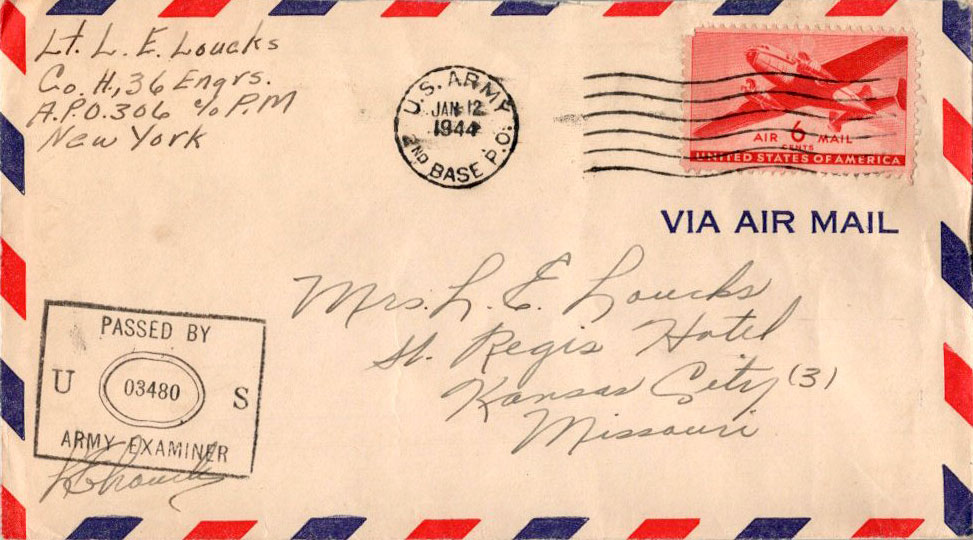 Lt. L. E. Loucks
Co. H., 36 Engrs.
A.P.O. 306 c/o P.M
New York
U.S. ARMY
JAN 12
1944
2ND BASE P.O.
AIR 6 MAIL
CENTS
UNITED STATES OF AMERICA
VIA AIR MAIL
Mrs. L. E. Loucks
St. Regis Hotel
Kansas City (3)
Missouri
PASSED BY
U 03480 S
ARMY EXAMINER